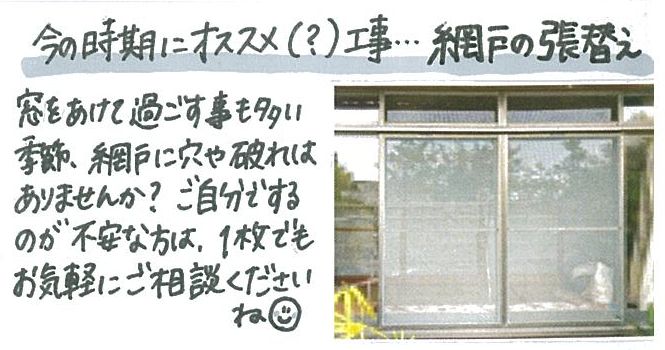 今の時期にオススメ(?)工事… 網戸の張替え
窓をあけて過ごす事も多い
季節、網戸に穴や破れは
ありませんか? ご自分でする
のが不安な方は、1枚でも
お気軽にご相談ください
ね